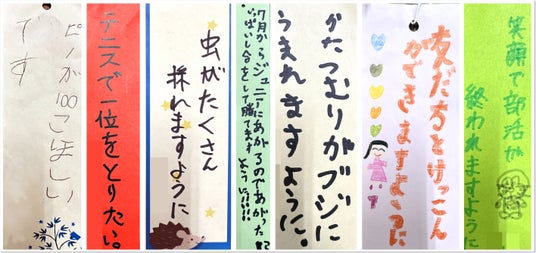 ピノが100こほしい
です
テニスで一位をとりたい。
虫がたくさん
採れますように
7月からジュニーにあがるのであがった
いっぱいし合をして勝てますように!!!!!
かたつむりがブジに
うまれますように。
友だちとけっこん
ができますように
笑顔で部活が
終われますように